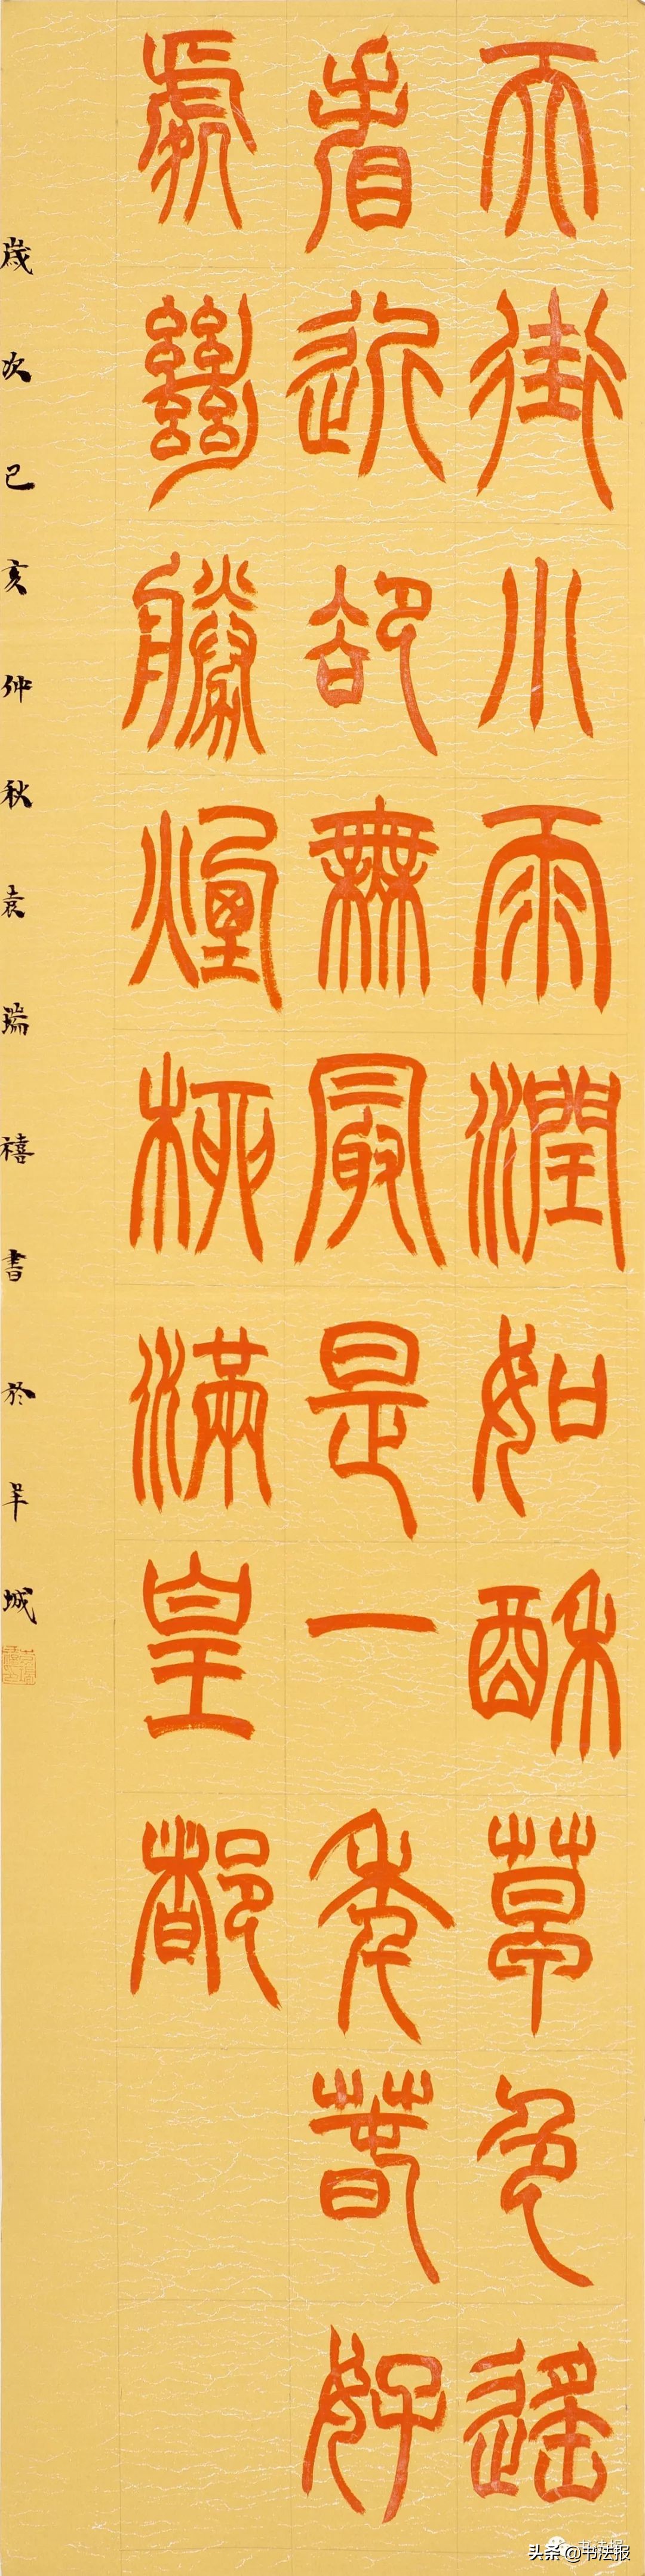 天街小雨潤如酥草色遙
看近卻無最是一年春好
處絕勝煙柳滿皇都
歲次己亥仲秋袁瑞禧書於羊城
头条 @书法报